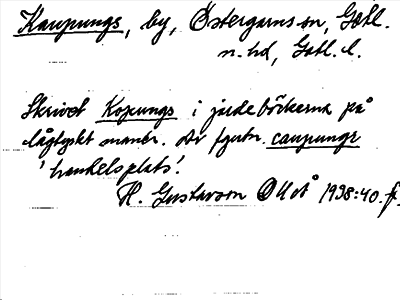 Kaupungs, by, Östergarns sn, Gotl.
n. hd, Gotl. l.
Skrivet Kopungs i jordeböckerna på
lågtyskt manér. Av fgutn. caupungr
'handelsplats'.
H. Gustavson OUoÅ 1938:40. f.